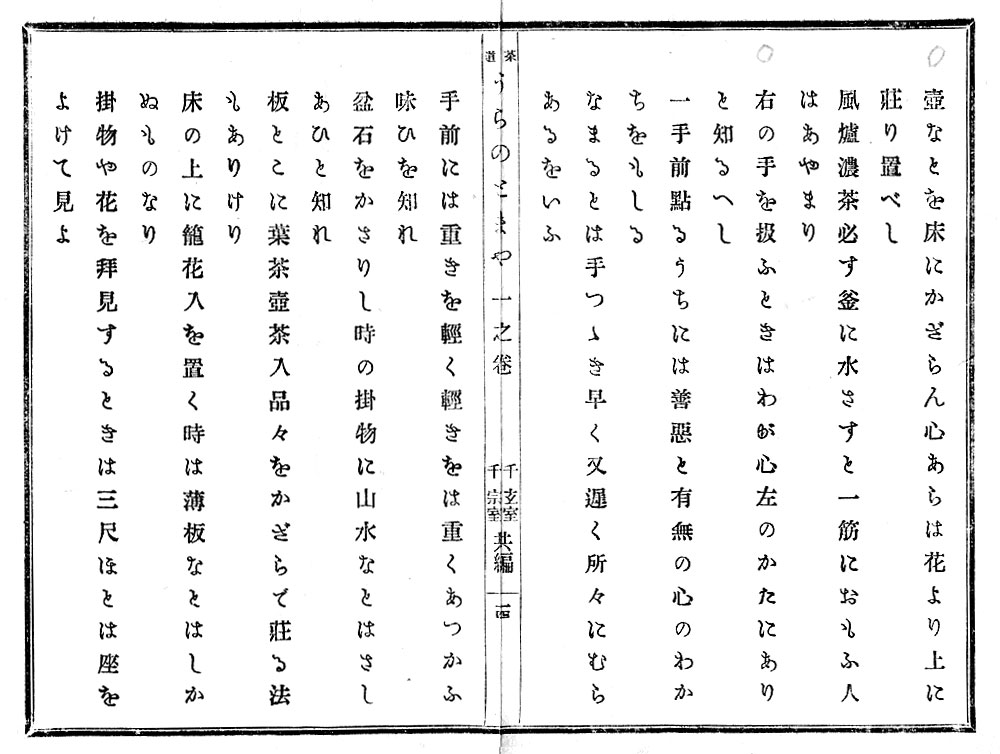 壺なとを床にかざらん心あらは花より上に
莊り置べし
風爐濃茶必す釜に水さすと一筋におもふ人
はあやまり
右の手を扱ふときはわが心左のかたにあり
と知るへし
一手前點るうちには善惡と有無の心のわか
ちをもしる
なまるとは手つゝき早く又遲く所々にむら
あるをいふ
茶道
うらのとまや 一之卷
千玄室
千宗室
共編
一四
手前には重きを輕く輕きをは重くあつかふ
味ひを知れ
盆石をかさりし時の掛物に山水なとはさし
あひと知れ
板とこに葉茶壺茶入品々をかざらで莊る法
もありけり
床の上に籠花入を置く時は薄板なとはしか
ぬものなり
掛物や花を拜見するときは三尺ほとは座を
よけて見よ